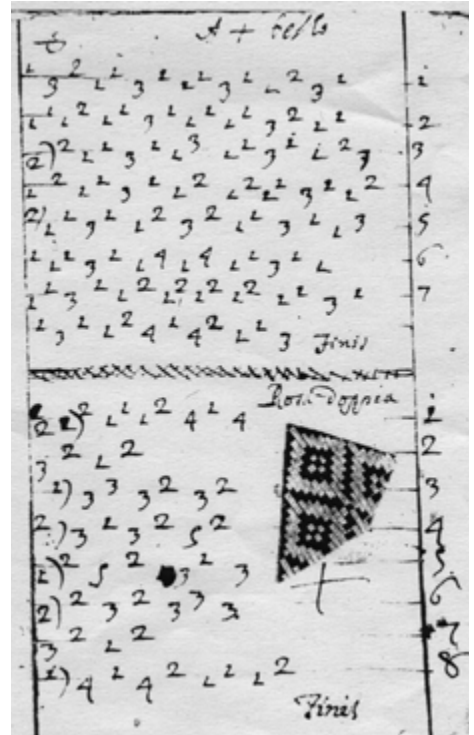 1 3 2 1 i 3 1 1 3 1 1 2 3 1 i
1 1 1 2 1 1 3 1 1 1 1 3 2 1 1 2
2) 2 1 1 3 1 1 3 1 1 3 i i 2 3 3
1 2 1 1 3 1 1 2 1 2 2 1 3 1 1 2 4
2) 1 1 3 1 1 2 3 2 1 1 3 1 1 3 5
1 1 3 1 1 4 1 4 1 1 3 1 1 6
1 1 3 1 1 2 1 2 1 2 1 2 1 1 3 1 7
1 3 1 1 2 4 1 4 2 1 1 3 Finis
Rosa doppia
2) 2 1 1 1 2 4 1 4 i
3 2 1 2 2
2) 3 3 3 2 3 2 3
2) 3 1 3 2 5 2 4
2) 2 5 2 3 2 3 5
2) 2 3 2 3 3 3 6
3 2 1 2 7
2) 4 1 4 2 1 1 1 2 8
Finis